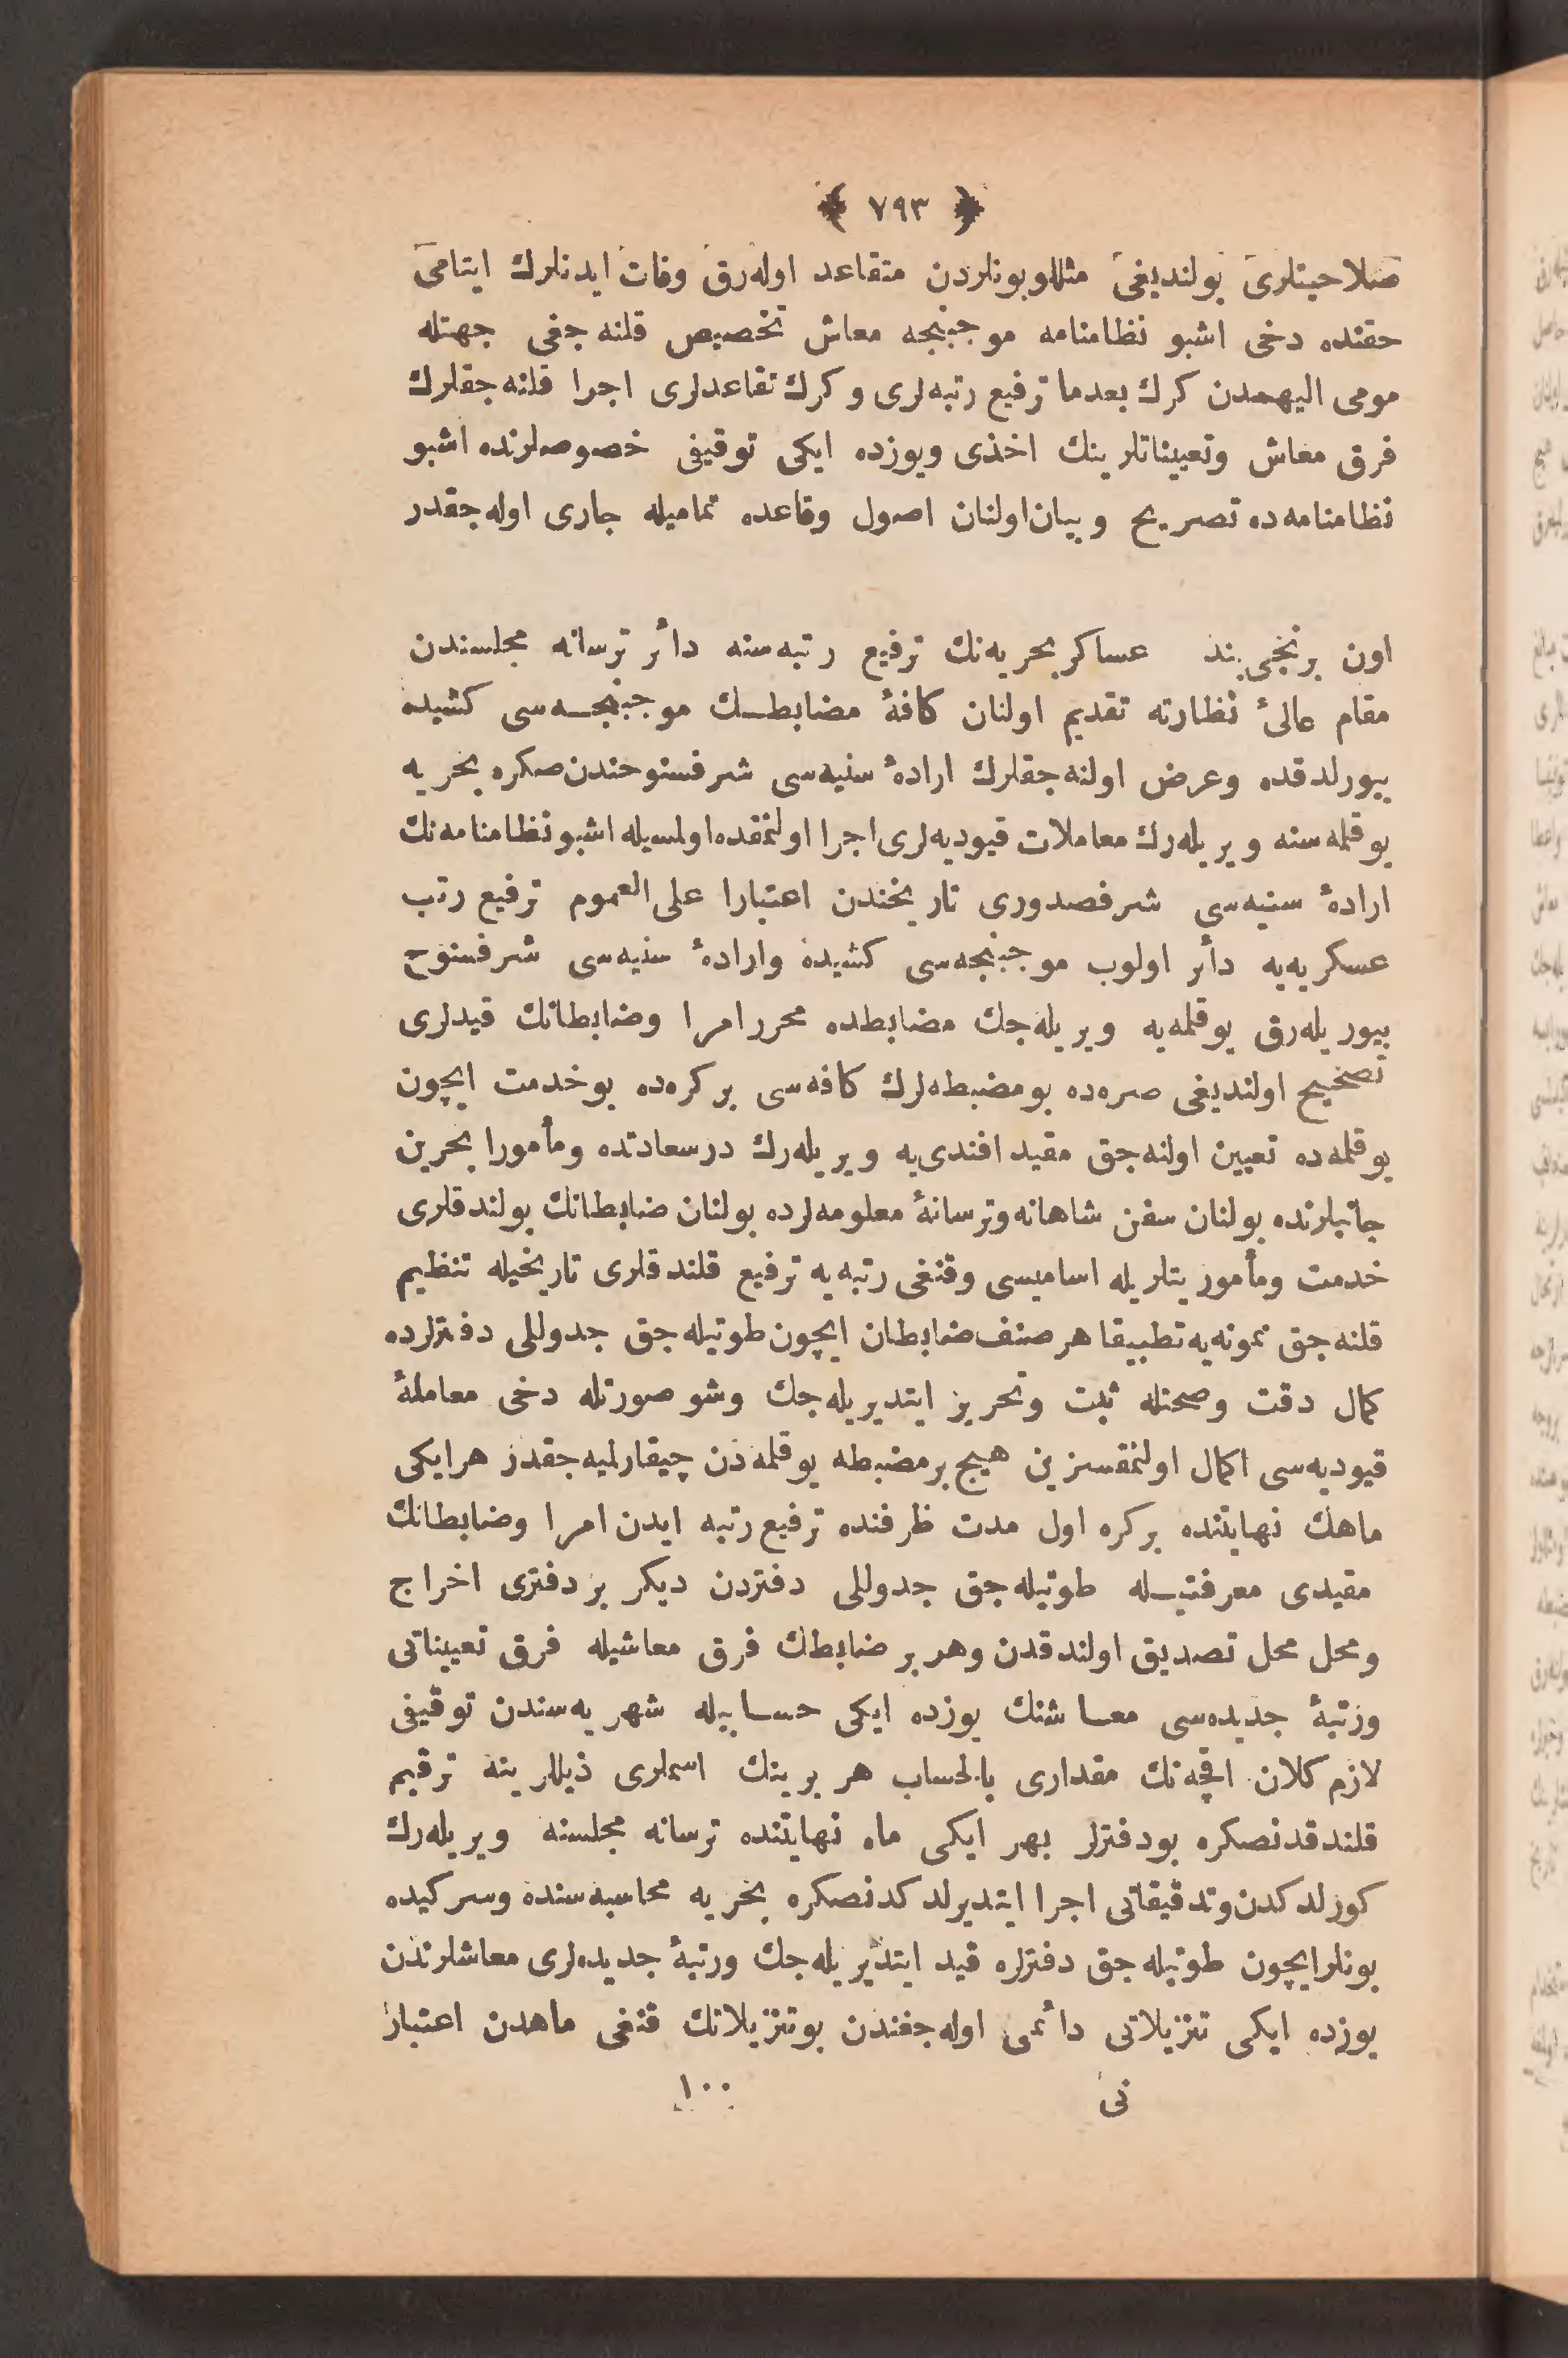 ﴿ ٧٩٣ ﴾
صلاحیتلری بولندیغی مثللو بونلردن متقاعد اوله‌رق وفات ایدنلرك ایتامی
حقنده دخی اشبو نظامنامه موجبنجه معاش تخصیص قلنه‌جغی جهتله
مومی الیهمدن كرك بعدما ترفیع رتبه‌لری و كرك تقاعدلری اجرا قلنه‌جقلرك
فرق معاش وتعییناتلرینك اخذی ویوزده ایكی توقیفی خصوصلرنده اشبو
نظامنامه‌ده تصریح و بیان اولنان اصول وقاعده تمامیله جاری اوله‌جقدر
اون برنجی بند عساكر بحریه‌نك ترفیع رتبه‌سنه دائر ترسانه مجلسندن
مقام عالئ نظارته تقدیم اولنان كافۀ مضابطك موجبنجه‌سی كشیده
بیورلدقده وعرض اولنه‌جقلرك ارادۀ سنیه‌سی شرفسنوحندن صكره بحریه
یوقلمه‌سنه ویریله‌رك معاملات قیودیه‌لری اجرا اولنمقده اولمسیله اشبو نظامنامه‌نك
ارادۀ سنیه‌سی شرفصدوری تاریخندن اعتبارا على العموم ترفیع رتب
عسكریه‌یه دائر اولوب موجبنجه‌سی كشیده وارادۀ سنیه‌سی شرفسنوح
بیوریله‌رق یوقلمه‌یه ویریله‌جك مضابطده محرر امرا وضابطانك قیدلری
تصحیح اولندیغی صره‌ده بو مضبطه‌لرك كافه‌سی بر كره‌ده بو خدمت ایچون
یوقلمه‌ده تعیین اولنه‌جق مقید افندی‌یه ویریله‌رك درسعادتده ومأمورا بحرین
جانبلرنده بولنان سفن شاهانه وترسانۀ معلومه‌لرده بولنان ضابطانك بولندقلری
خدمت ومأموریتلریله اسامیسی وقنغی رتبه‌یه ترفیع قلندقلری تاریخیله تنظیم
قلنه‌جق نمونه‌یه تطبیقا هر صنف ضابطان ایچون طوتیله‌جق جدوللی دفترلرده
كمال دقت وصحتله ثبت وتحریر ایتدیریله‌جك وشو صورتله دخی معاملۀ
قیودیه‌سی اكمال اولنمقسزین هیچ بر مضبطه یوقلمه‌دن چیقارلمیه‌جقدر هر ایكی
ماهك نهایتنده بر كره اول مدت ظرفنده ترفیع رتبه ایدن امرا وضابطانك
مقیدی معرفتیله طوتیله‌جق جدوللی دفتردن دیكر بر دفتری اخراج
ومحل محل تصدیق اولندقدن وهر بر ضابطك فرق معاشیله فرق تعییناتی
ورتبۀ جدیده‌سی معاشنك یوزده ایكی حسابیله شهریه‌سندن توقیفی
لازم كلان اقچه‌نك مقداری بالحساب هر برینك اسملری ذیللرینه ترقیم
قلندقدنصكره بو دفترلر بهر ایكی ماه نهایتنده ترسانه مجلسنه ویریله‌رك
كورلدكدن وتدقیقاتی اجرا ایتدیرلدكدنصكره بحریه محاسبه‌سنده وسركیده
بونلر ایچون طوتیله‌جق دفترلره قید ایتدیریله‌جك ورتبۀ جدیده‌لری معاشلرندن
یوزده ایكی تنزیلاتی دائمی اوله‌جغندن بو تنزیلاتك قنغی ماهدن اعتبار
نی ١٠٠